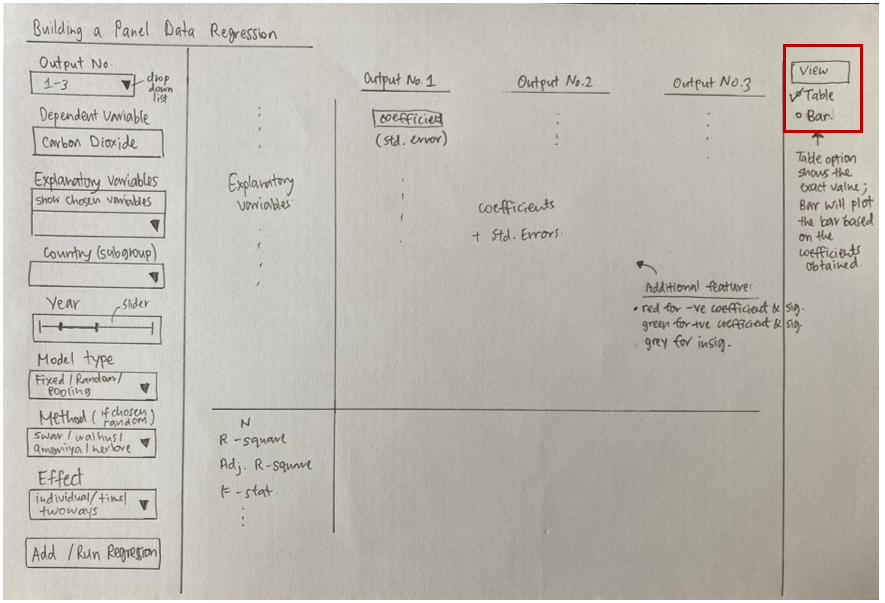 Building a Panel Data Regression
Output No.
1-3
drop
down
list
Dependent Variable
Carbon Dioxide
Explanatory Variables
show chosen variables
Country (subgroup)
Year
slider
Model type
Fixed / Random /
pooling
Method (if chosen
random)
swar / walhus /
amemiya / nerlove
Effect
individual / time /
twoways
Add / Run Regression
Explanatory
variables
N
R-square
Adj. R-square
F-stat.
Output No. 1
Output No. 2
Output No. 3
coefficient
(std. error)
coefficients
+ Std. Errors.
Additional feature:
• red for -ve coefficient & sig.
green for +ve coefficient & sig.
grey for insig.
View
Table
Bar.
Table option
shows the
exact value;
Bar will plot
the bar based
on the
coefficients
obtained.